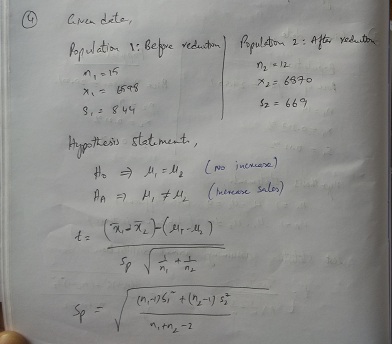 ④ Given data,
Population 1: Before reduction | Population 2: After reduction
n₁ = 15
n₂ = 12
x₁ = 6598
x₂ = 6870
S₁ = 844
S₂ = 669
Hypothesis statement,
H₀ ⇒ μ₁ = μ₂ (no increase)
H_A ⇒ μ₁ ≠ μ₂ (Increase sales)
t = (x̄₁ - x̄₂) - (μ₁ - μ₂) / Sp √(1/n₁ + 1/n₂)
Sp = √((n₁-1)S₁² + (n₂-1) S₂² / n₁+n₂-2)